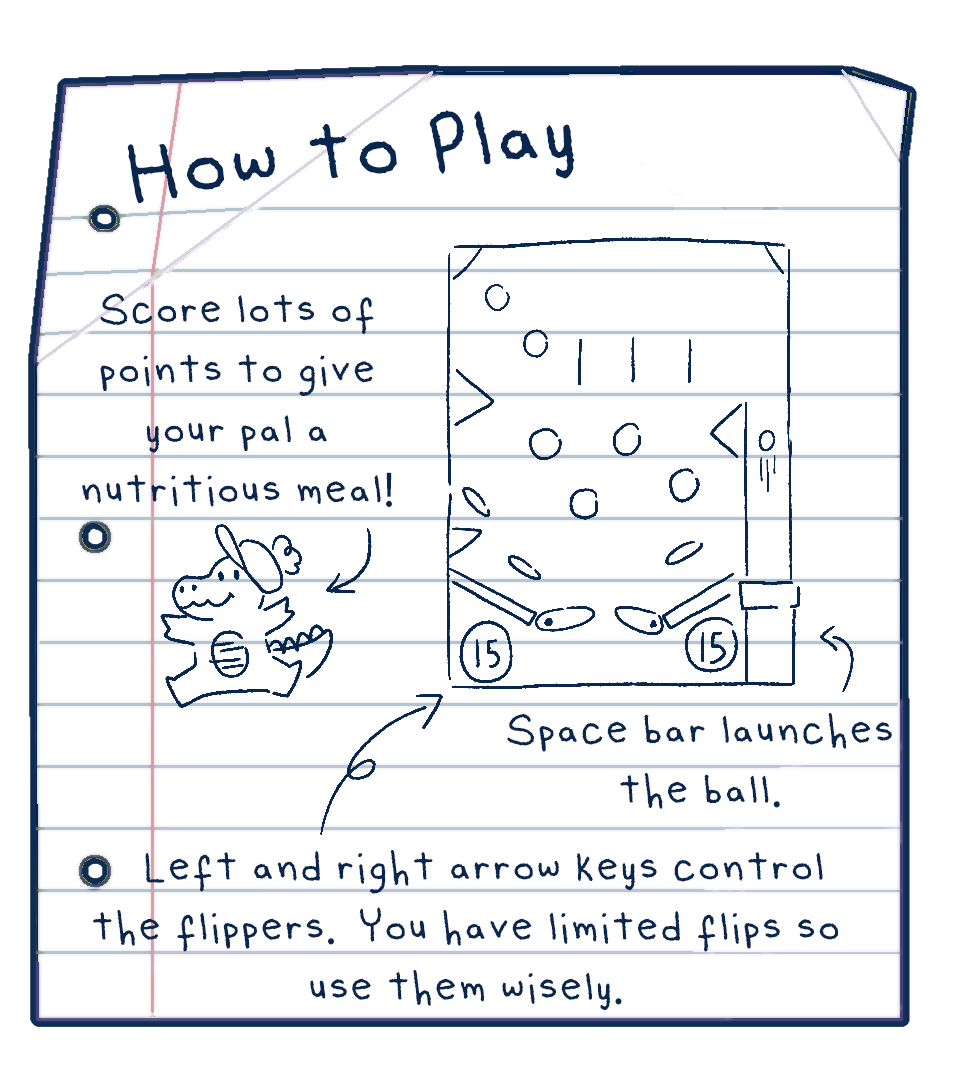 How to Play
Score lots of
points to give
your pal a
nutritious meal!
15
15
Space bar launches
the ball.
Left and right arrow keys control
the flippers. You have limited flips so
use them wisely.